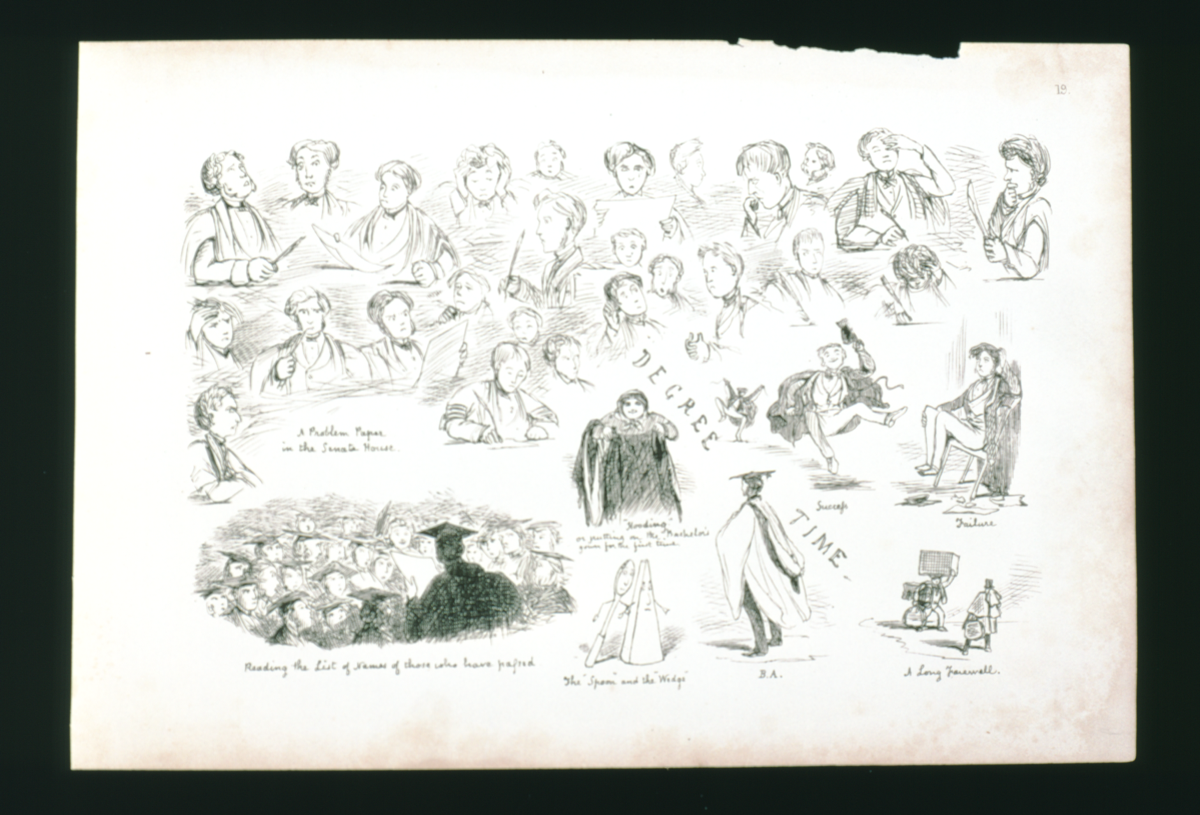 19
A Problem Paper
in the Senate House.
DEGREE
"Hooding"
or putting on the Bachelor's
gown for the first time.
Success
Failure
TIME.
Reading the List of Names of those who have passed
The "Spoon" and the "Wedge"
B.A.
A Long Farewell.